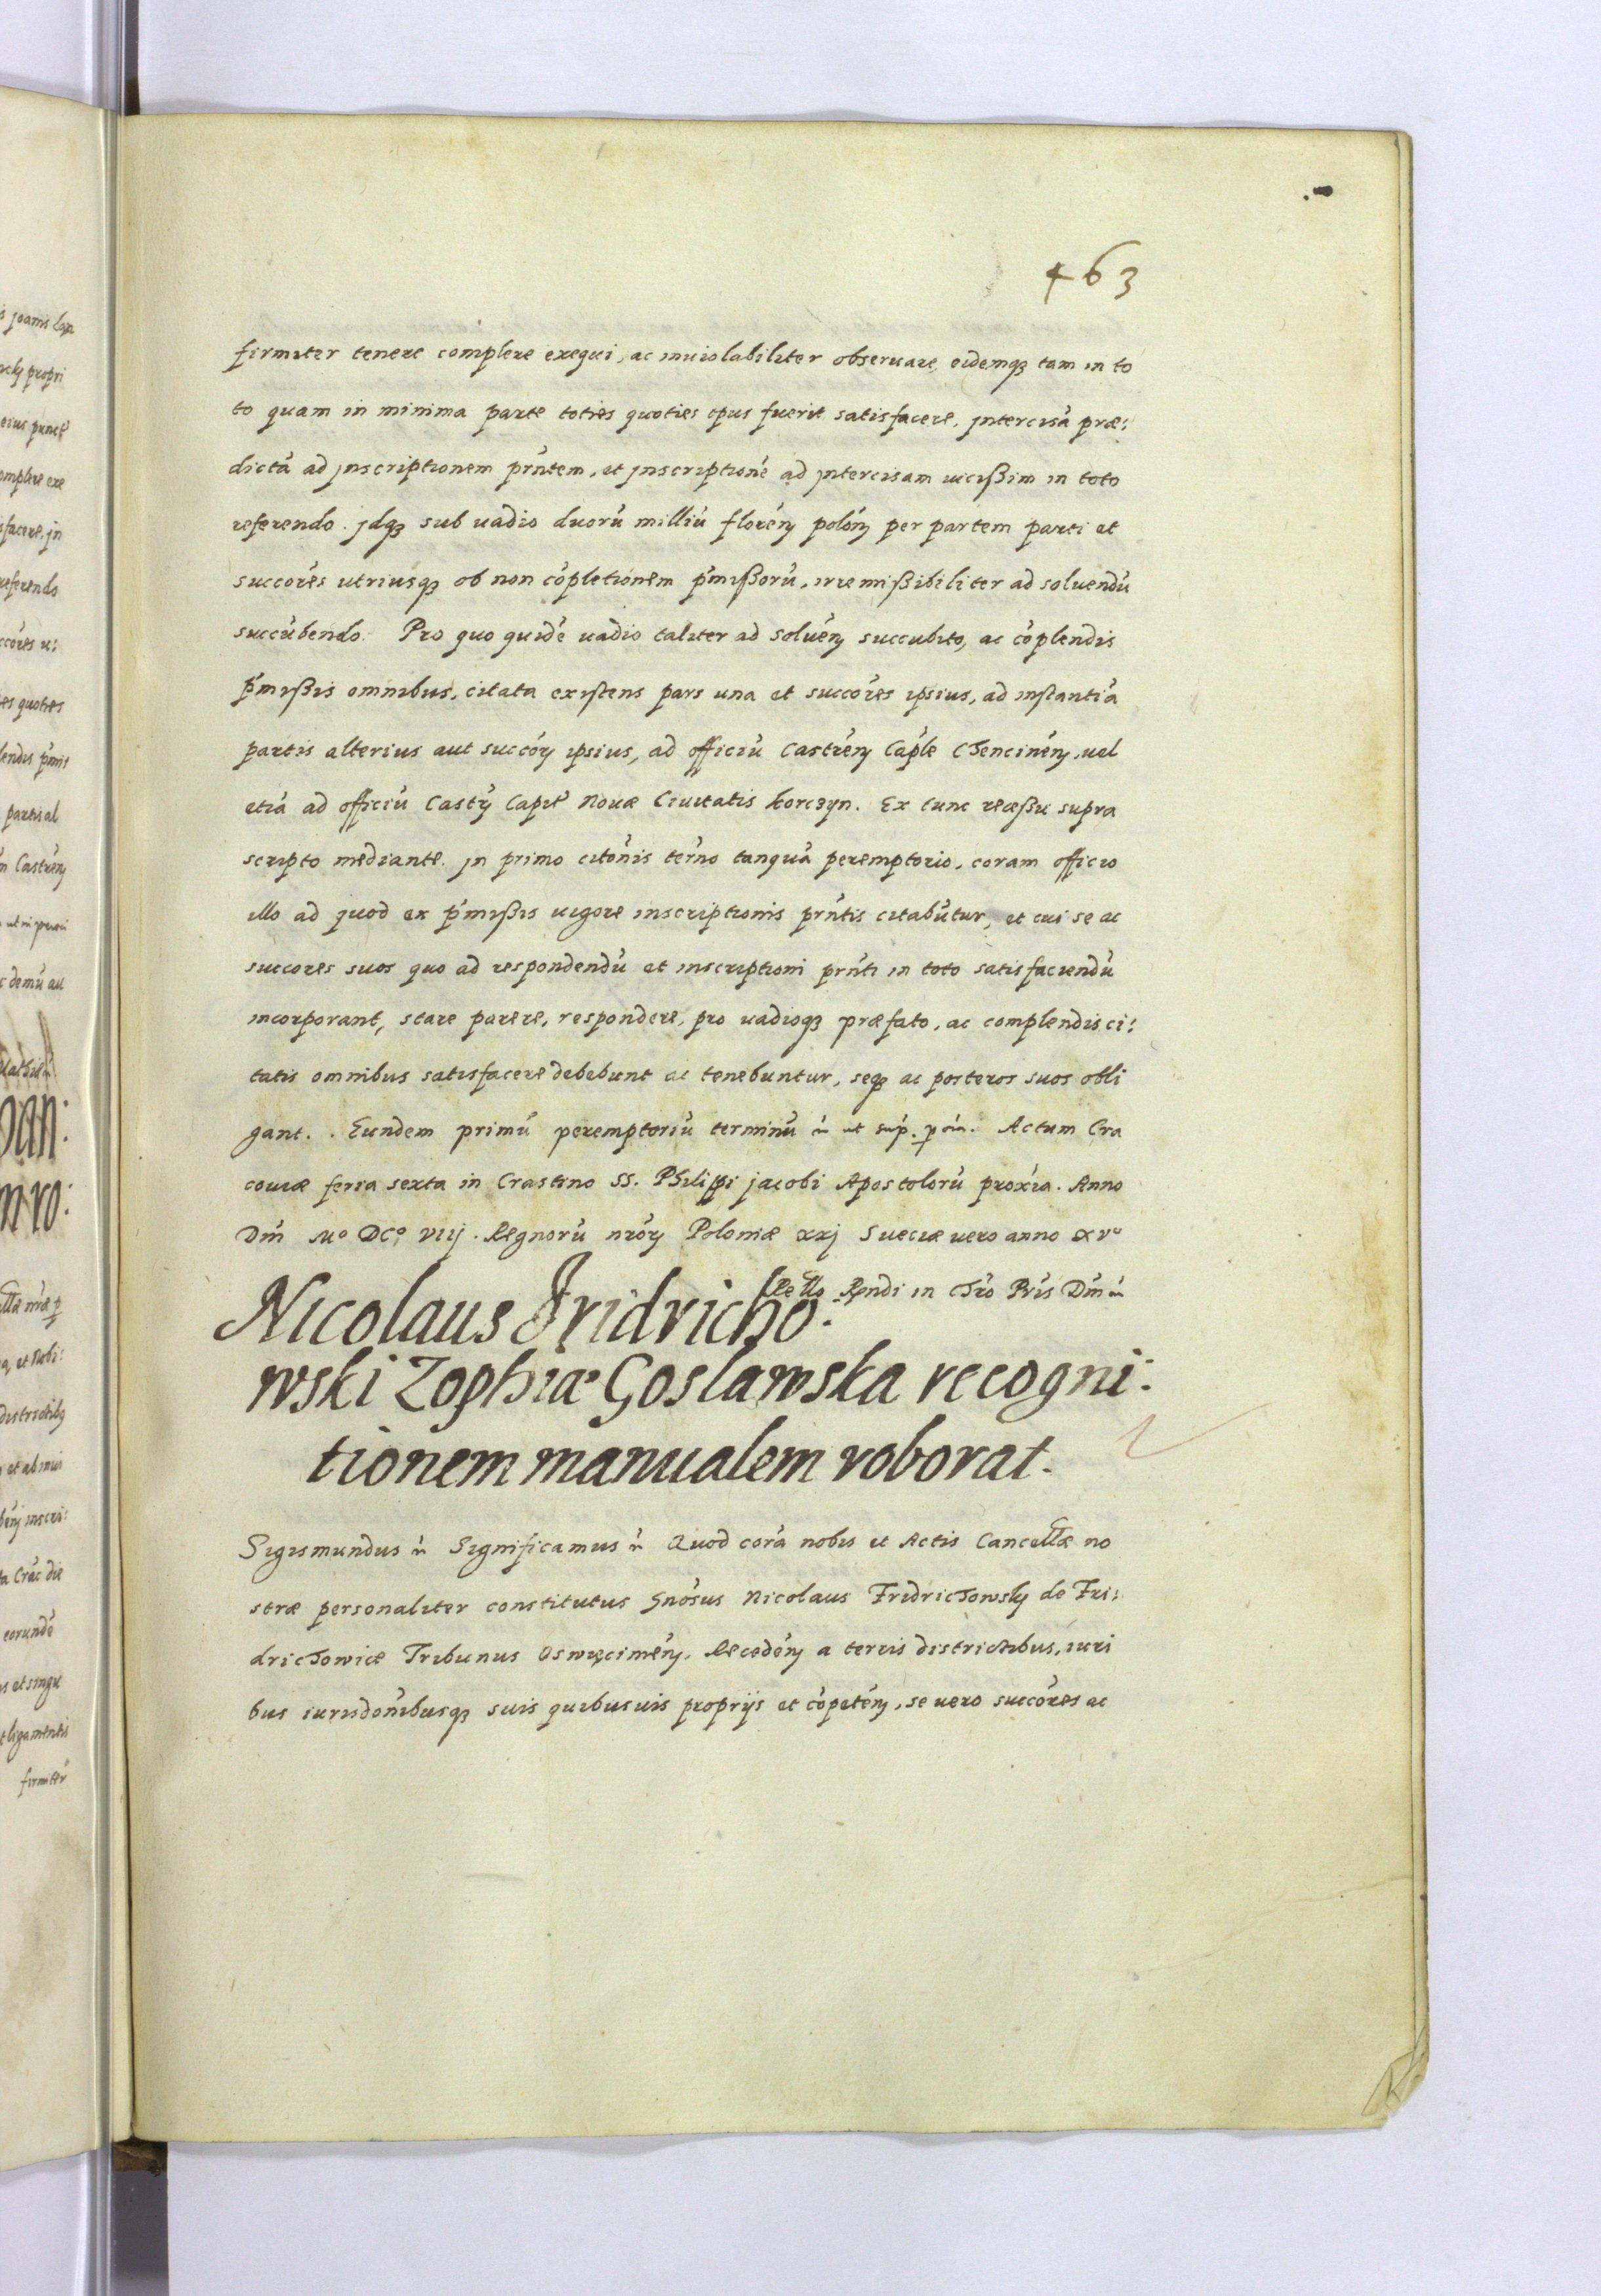 463
firmiter tenere complere exequi, ac inuiolabiliter obseruare, eidemqꝫ tam in to
to quam in minima parte toties quoties opus fuerit satisfacere, jntercisã præ:
dictã ad jnscriptionem prñtem, et jnscriptionẽ ad jntercisam vicißim in toto
referendo. jdqꝫ sub vadio duorũ milliũ florẽn polõn per partem parti et
succõres utriusqꝫ ob non cõpletionem p̃mißorũ, irremißibiliter ad soluendũ
succũbendo. Pro quo quidẽ vadio taliter ad soluẽn succubito, ac cõplendis
p̃mißis omnibus, citata existens pars una et succõres ipsius, ad instantiã
partis alterius aut succõr ipsius, ad officiũ Castrẽn Caplẽ Chencinẽn, uel
etiã ad officiũ Castr̃ Capit̃ Nouæ Ciuitatis Korczyn. Ex tunc reaßu supra
scripto mediante. jn primo citõnis terño tanquã peremptorio, coram officio
illo ad quod ex p̃mißis uigore inscriptionis prñtis citabũtur, et cui se ac
succores suos quo ad respondendũ et inscriptioni prñti in toto satisfaciendũ
incorporant, stare parere, respondere, pro vadioqꝫ præfato, ac complendis ci:
tatis omnibus satisfacere debebunt ac tenebuntur, seqꝫ ac posteros suos obli
gant. . Eundem primũ peremptoriũ terminũ ut sup̃. Actum Cra
couiæ feria sexta in Crastino SS. Philippi jacobi Apostolorũ proxĩa. Anno
Dñi Mo DCo viij. Regnorũ nrõr Poloniæ xxj Sueciæ vero anno xvo
Rello Rñdi in Chrõ Pris Dñi
Nicolaus Fridricho:
wski Zophiæ Goslawska recogni:
tionem manualem roborat.
Sigismundus Significamus Quod corã nobis et Actis Cancellæ no
stræ personaliter constitutus Gnõsus Nicolaus Fridrichowsky de Fri:
drichowice Tribunus Oswięcimẽn. Recedẽn a terris districtibus, iuri
bus iurisdõnibusqꝫ suis quibusuis proprijs et cõpetẽn, se vero succõres ac